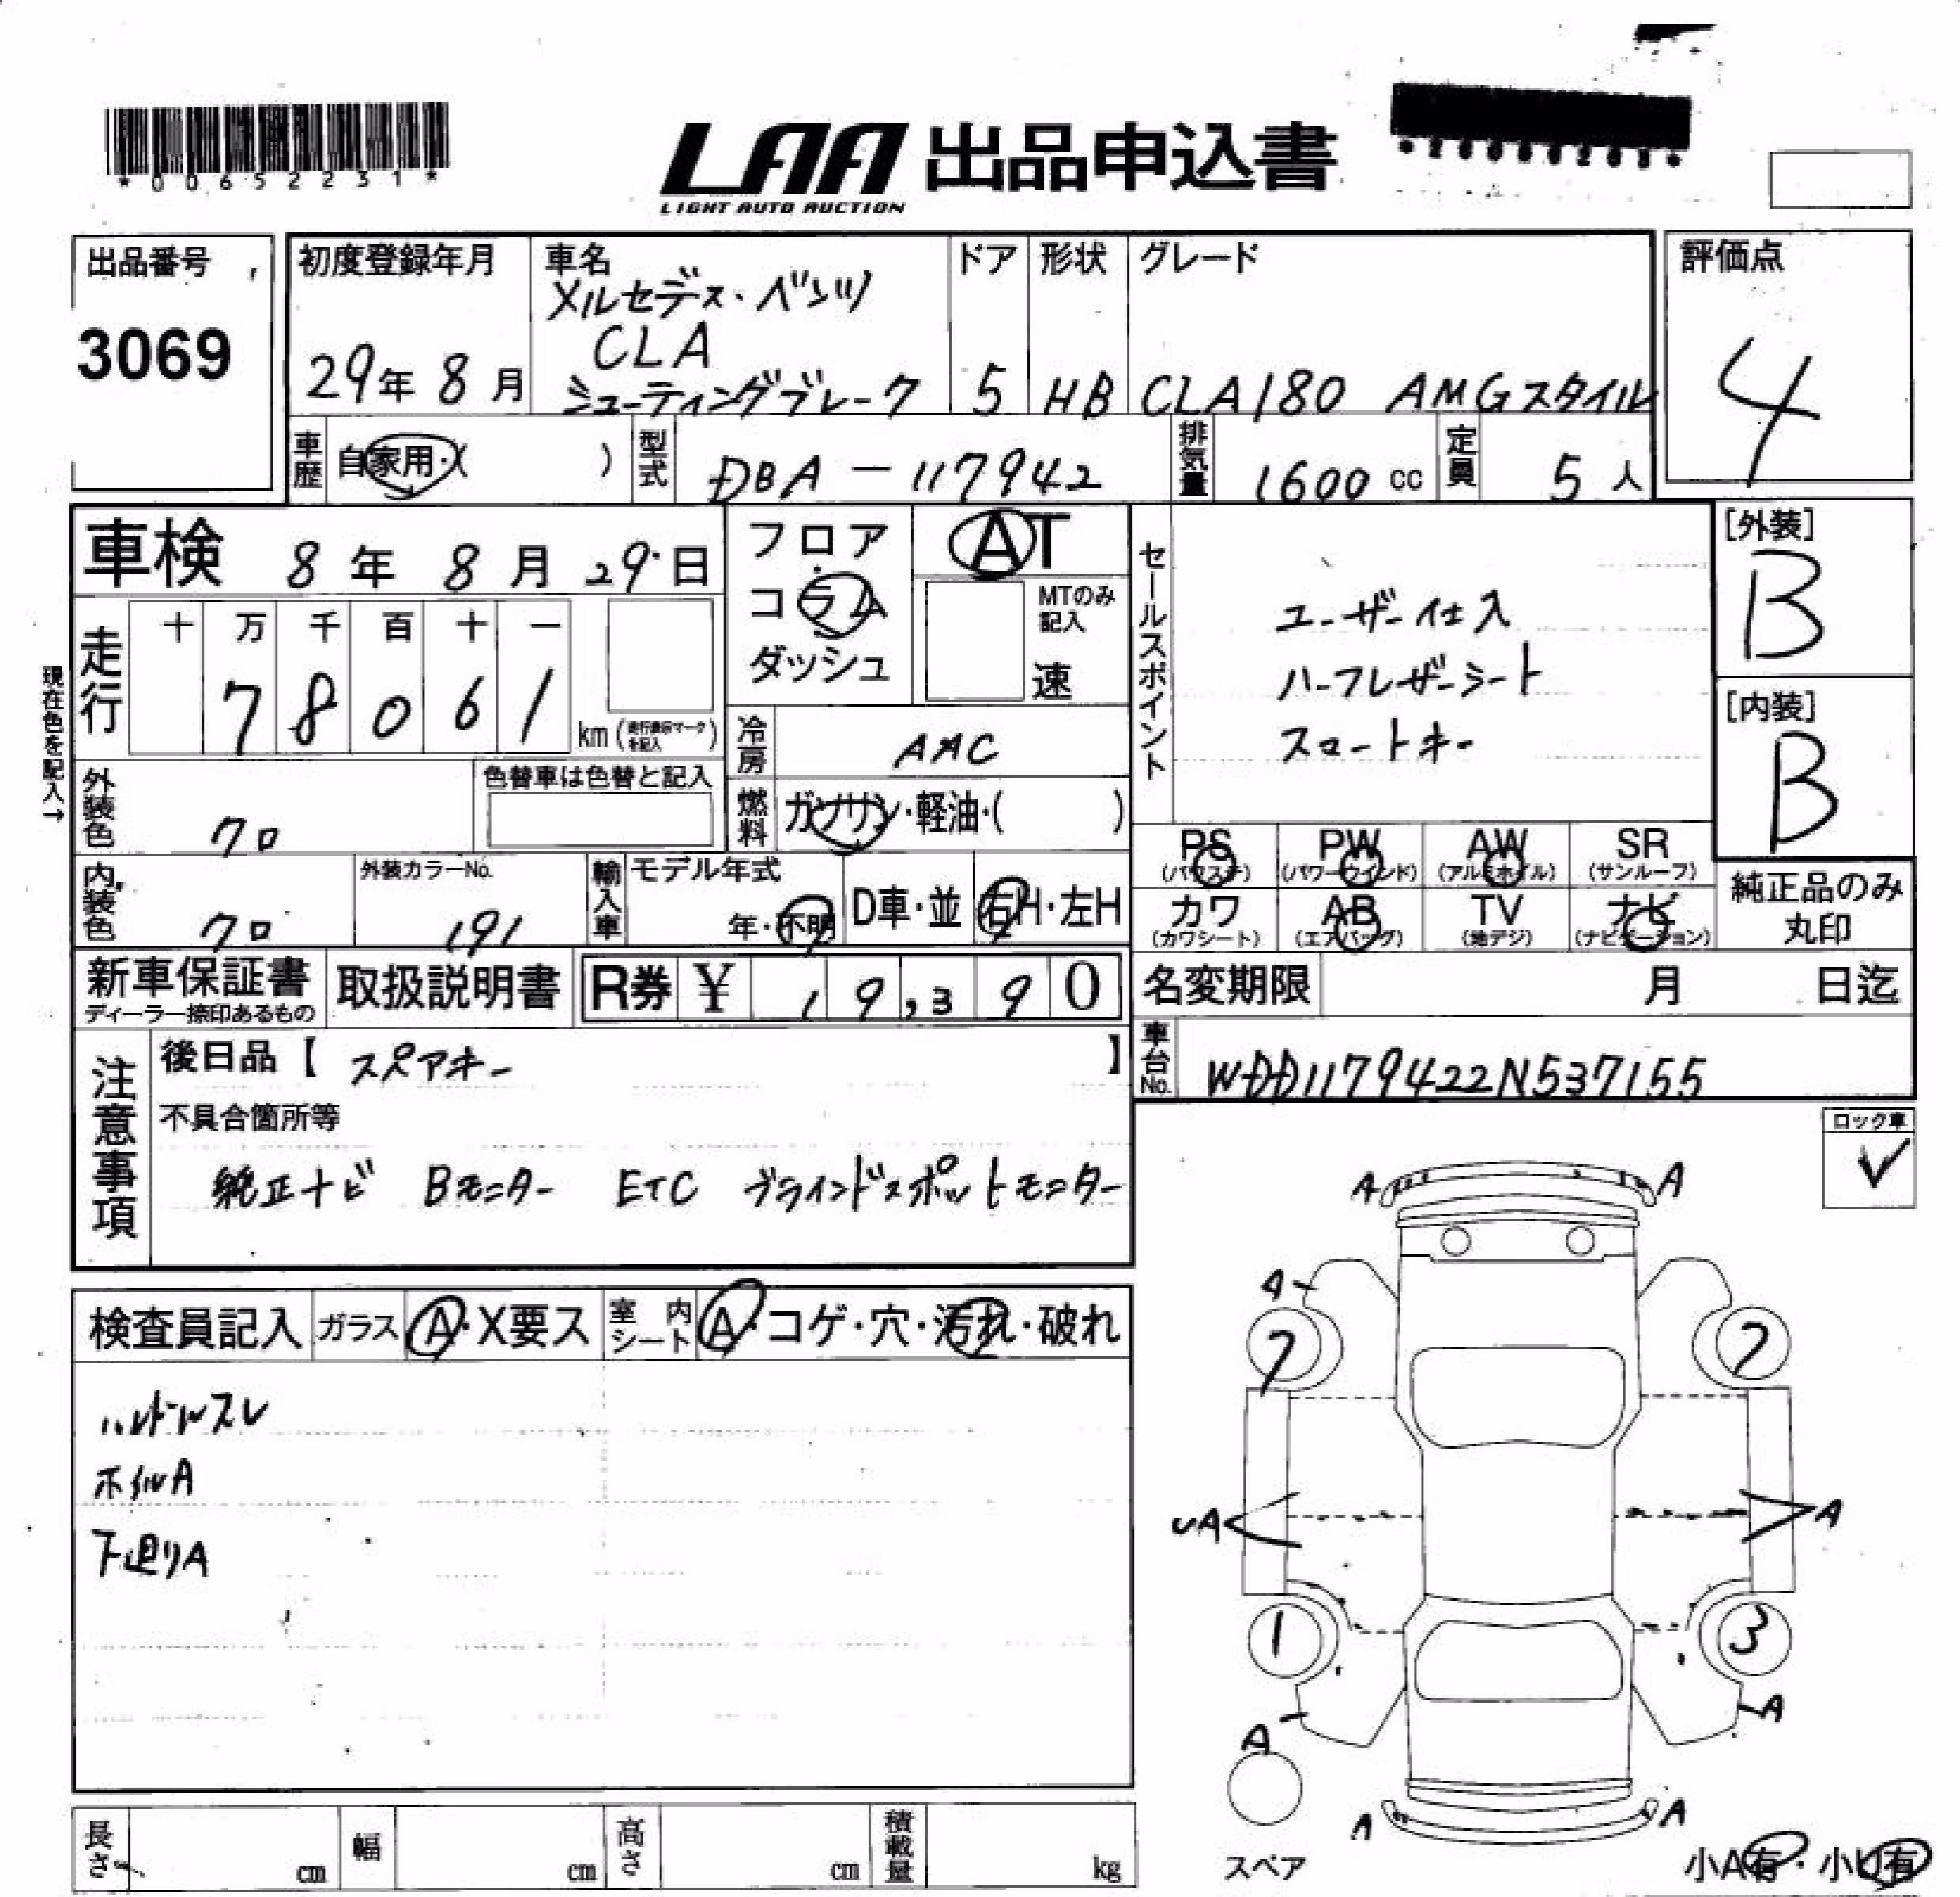 *00652231*
LAA 出品申込書
LIGHT AUTO AUCTION
出品番号
3069
初度登録年月
29年 8月
車名
メルセデス・ベンツ
CLA
シューティングブレーク
ドア
5
形状
HB
グレード
CLA180 AMGスタイル
評価点
4
車歴 自家用・( )
型式 DBA-117942
排気量 1600cc
定員 5人
車検 8年 8月 29日
フロア
コラム
ダッシュ
AT
MTのみ記入
速
セールスポイント
ユーザー仕入
ハーフレザーシート
スマートキー
[外装]
B
[内装]
B
現在色を記入→
走行
十 万 千 百 十 一
7 8 0 6 1 km (走行表示マークを記入)
冷房 AAC
外装色 クロ
色替車は色替と記入
燃料 ガソリン・軽油・( )
内装色 クロ
外装カラーNo.
191
輸入車
モデル年式
年・不明
D車・並
右H・左H
PS (パワステ)
PW (パワーウインド)
AW (アルミホイル)
SR (サンルーフ)
カワ (カワシート)
AB (エアバッグ)
TV (地デジ)
ナビ (ナビゲーション)
純正品のみ
丸印
新車保証書
ディーラー捺印あるもの
取扱説明書
R券 ¥ 19,390
名変期限 月 日迄
車台No. WDD1179422N537155
注意事項
後日品【 スペアキー 】
不具合箇所等
純正ナビ Bモニター ETC ブラインドスポットモニター
ロック車
検査員記入 ガラス A・X要ス 室内シート A・コゲ・穴・汚れ・破れ
ハンドルスレ
ホイルA
下廻りA
A A
A
7 7
UA A
1 3
A A
A A
スペア
小A有・小U有
長さ cm 幅 cm 高さ cm 積載量 kg